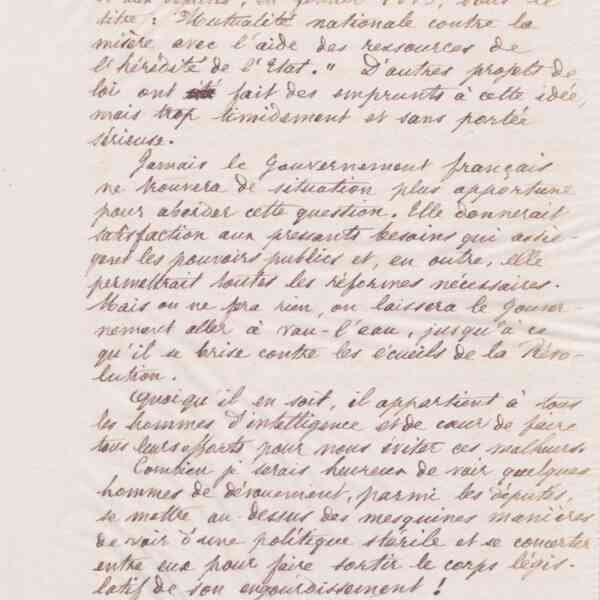 titre : "Mutualité nationale contre la
misère avec l'aide des ressources de
l'hérédité de l'Etat." D'autres projets de
loi ont fait des emprunts à cette idée,
mais trop timidement et sans portée
sérieuse.
Jamais le Gouvernement français
ne trouvera de situation plus opportune
pour aborder cette question. Elle donnerait
satisfaction aux pressants besoins qui assiè-
gent les pouvoirs publics et, en outre, elle
permettrait toutes les réformes nécessaires.
Mais on ne fera rien, on laissera le Gouver-
nement aller à vau-l'eau, jusqu'à ce
qu'il se brise contre les écueils de la Révo-
lution.
Quoiqu'il en soit, il appartient à tous
les hommes d'intelligence et de cœur de faire
tous leurs efforts pour nous éviter ces malheurs.
Combien je serais heureux de voir quelques
hommes de dévouement, parmi les députés,
se mettre au dessus des mesquines manières
de voir d'une politique stérile et se concerter
entre eux pour faire sortir le corps légis-
latif de son engourdissement !